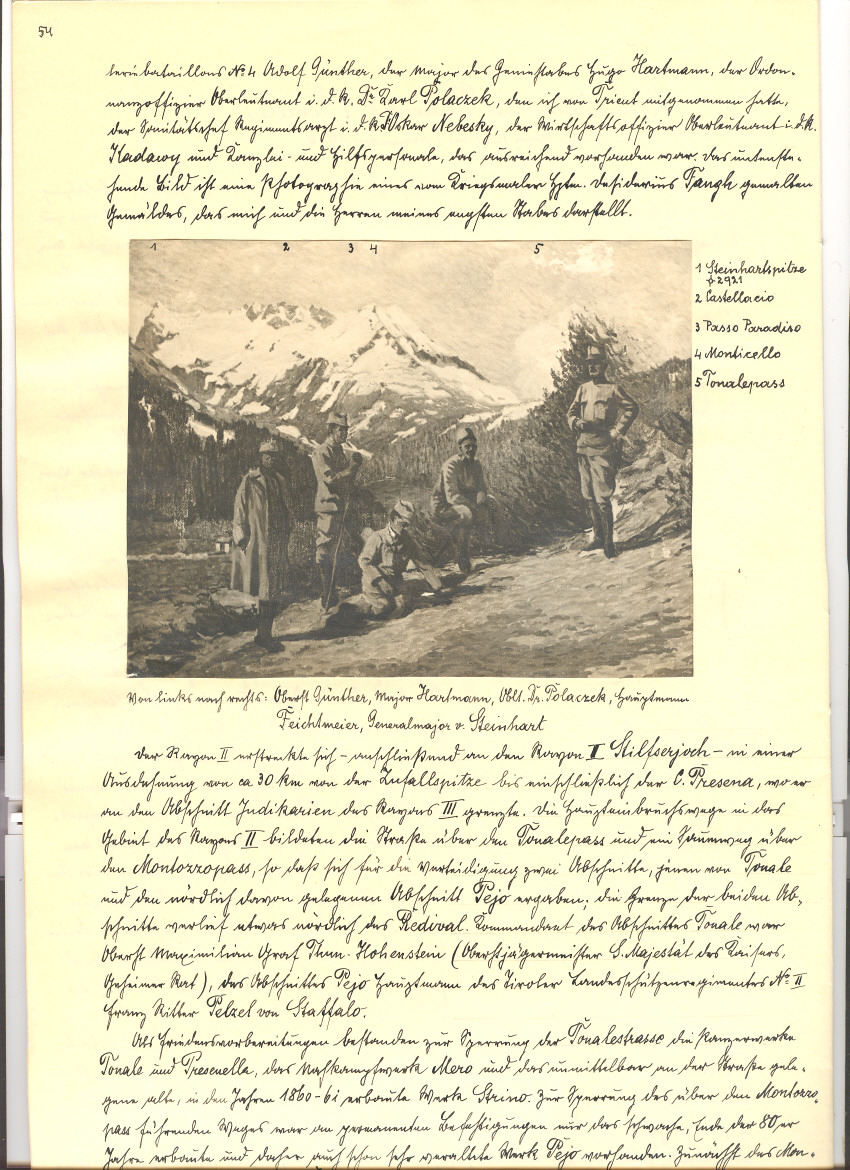 54
teriebataillons No 4 Adolf Günther, der Major des Geniestabes Hugo Hartmann, der Ordon-
nanzoffizier Oberleutnant i. d. R. Dr Karl Polaczek, den ich von Trient mitgenommen hatte,
der Sanitätschef Regimentsarzt i. d. R. Oskar Nebesky, der Wirtschaftsoffizier Oberleutnant i. d. R.
Hadawy und Kanzlei- und Hilfspersonale, das ausreichend vorhanden war. Das untenste-
hende Bild ist eine Photographie eines vom Kriegsmaler Hptm. Desiderius Fangh gemalten
Gemäldes, das mich und die Herren meines engsten Stabes darstellt.
1 2 3 4 5
1 Steinhartspitze
2921
2 Castellacio
3 Passo Paradiso
4 Monticello
5 Tonalepass
Von links nach rechts: Oberst Günther, Major Hartmann, Oblt. Dr. Polaczek, Hauptmann
Feichtmeier, Generalmajor v. Steinhart
Der Rayon II erstreckte sich – anschließend an den Rayon I Stilfserjoch – in einer
Ausdehnung von ca 30 km von der Zufallspitze bis einschließlich der C. Presena, wo er
an den Abschnitt Judikarien des Rayons III grenzte. Die Haupteinbruchswege in das
Gebiet des Rayons II bildeten die Straße über den Tonalepass und ein Saumweg über
den Montozzopass, so daß sich für die Verteidigung zwei Abschnitte, jenen von Tonale
und den nördlich davon gelegenen Abschnitt Pejo ergaben; die Grenze der beiden Ab-
schnitte verlief etwas nördlich des Redival. Kommandant des Abschnittes Tonale war
Oberst Maximilian Graf Thun-Hohenstein (Oberstjägermeister S. Majestät des Kaisers,
Geheimer Rat), des Abschnittes Pejo Hauptmann des Tiroler Landesschützenregimentes No II
Franz Ritter Pelzel von Staffalo.
Als Friedensvorbereitungen bestanden zur Sperrung der Tonalestrasse die Panzerwerke
Tonale und Presenella, das Nahkampfwerk Mero und das unmittelbar an der Straße gele-
gene alte, in den Jahren 1860-61 erbaute Werk Strino. Zur Sperrung des über den Montozzo-
pass führenden Weges war an permanenten Befestigungen nur das schwache, Ende der 80er
Jahre erbaute und daher auch schon sehr veraltete Werk Pejo vorhanden. Zunächst des Mon-